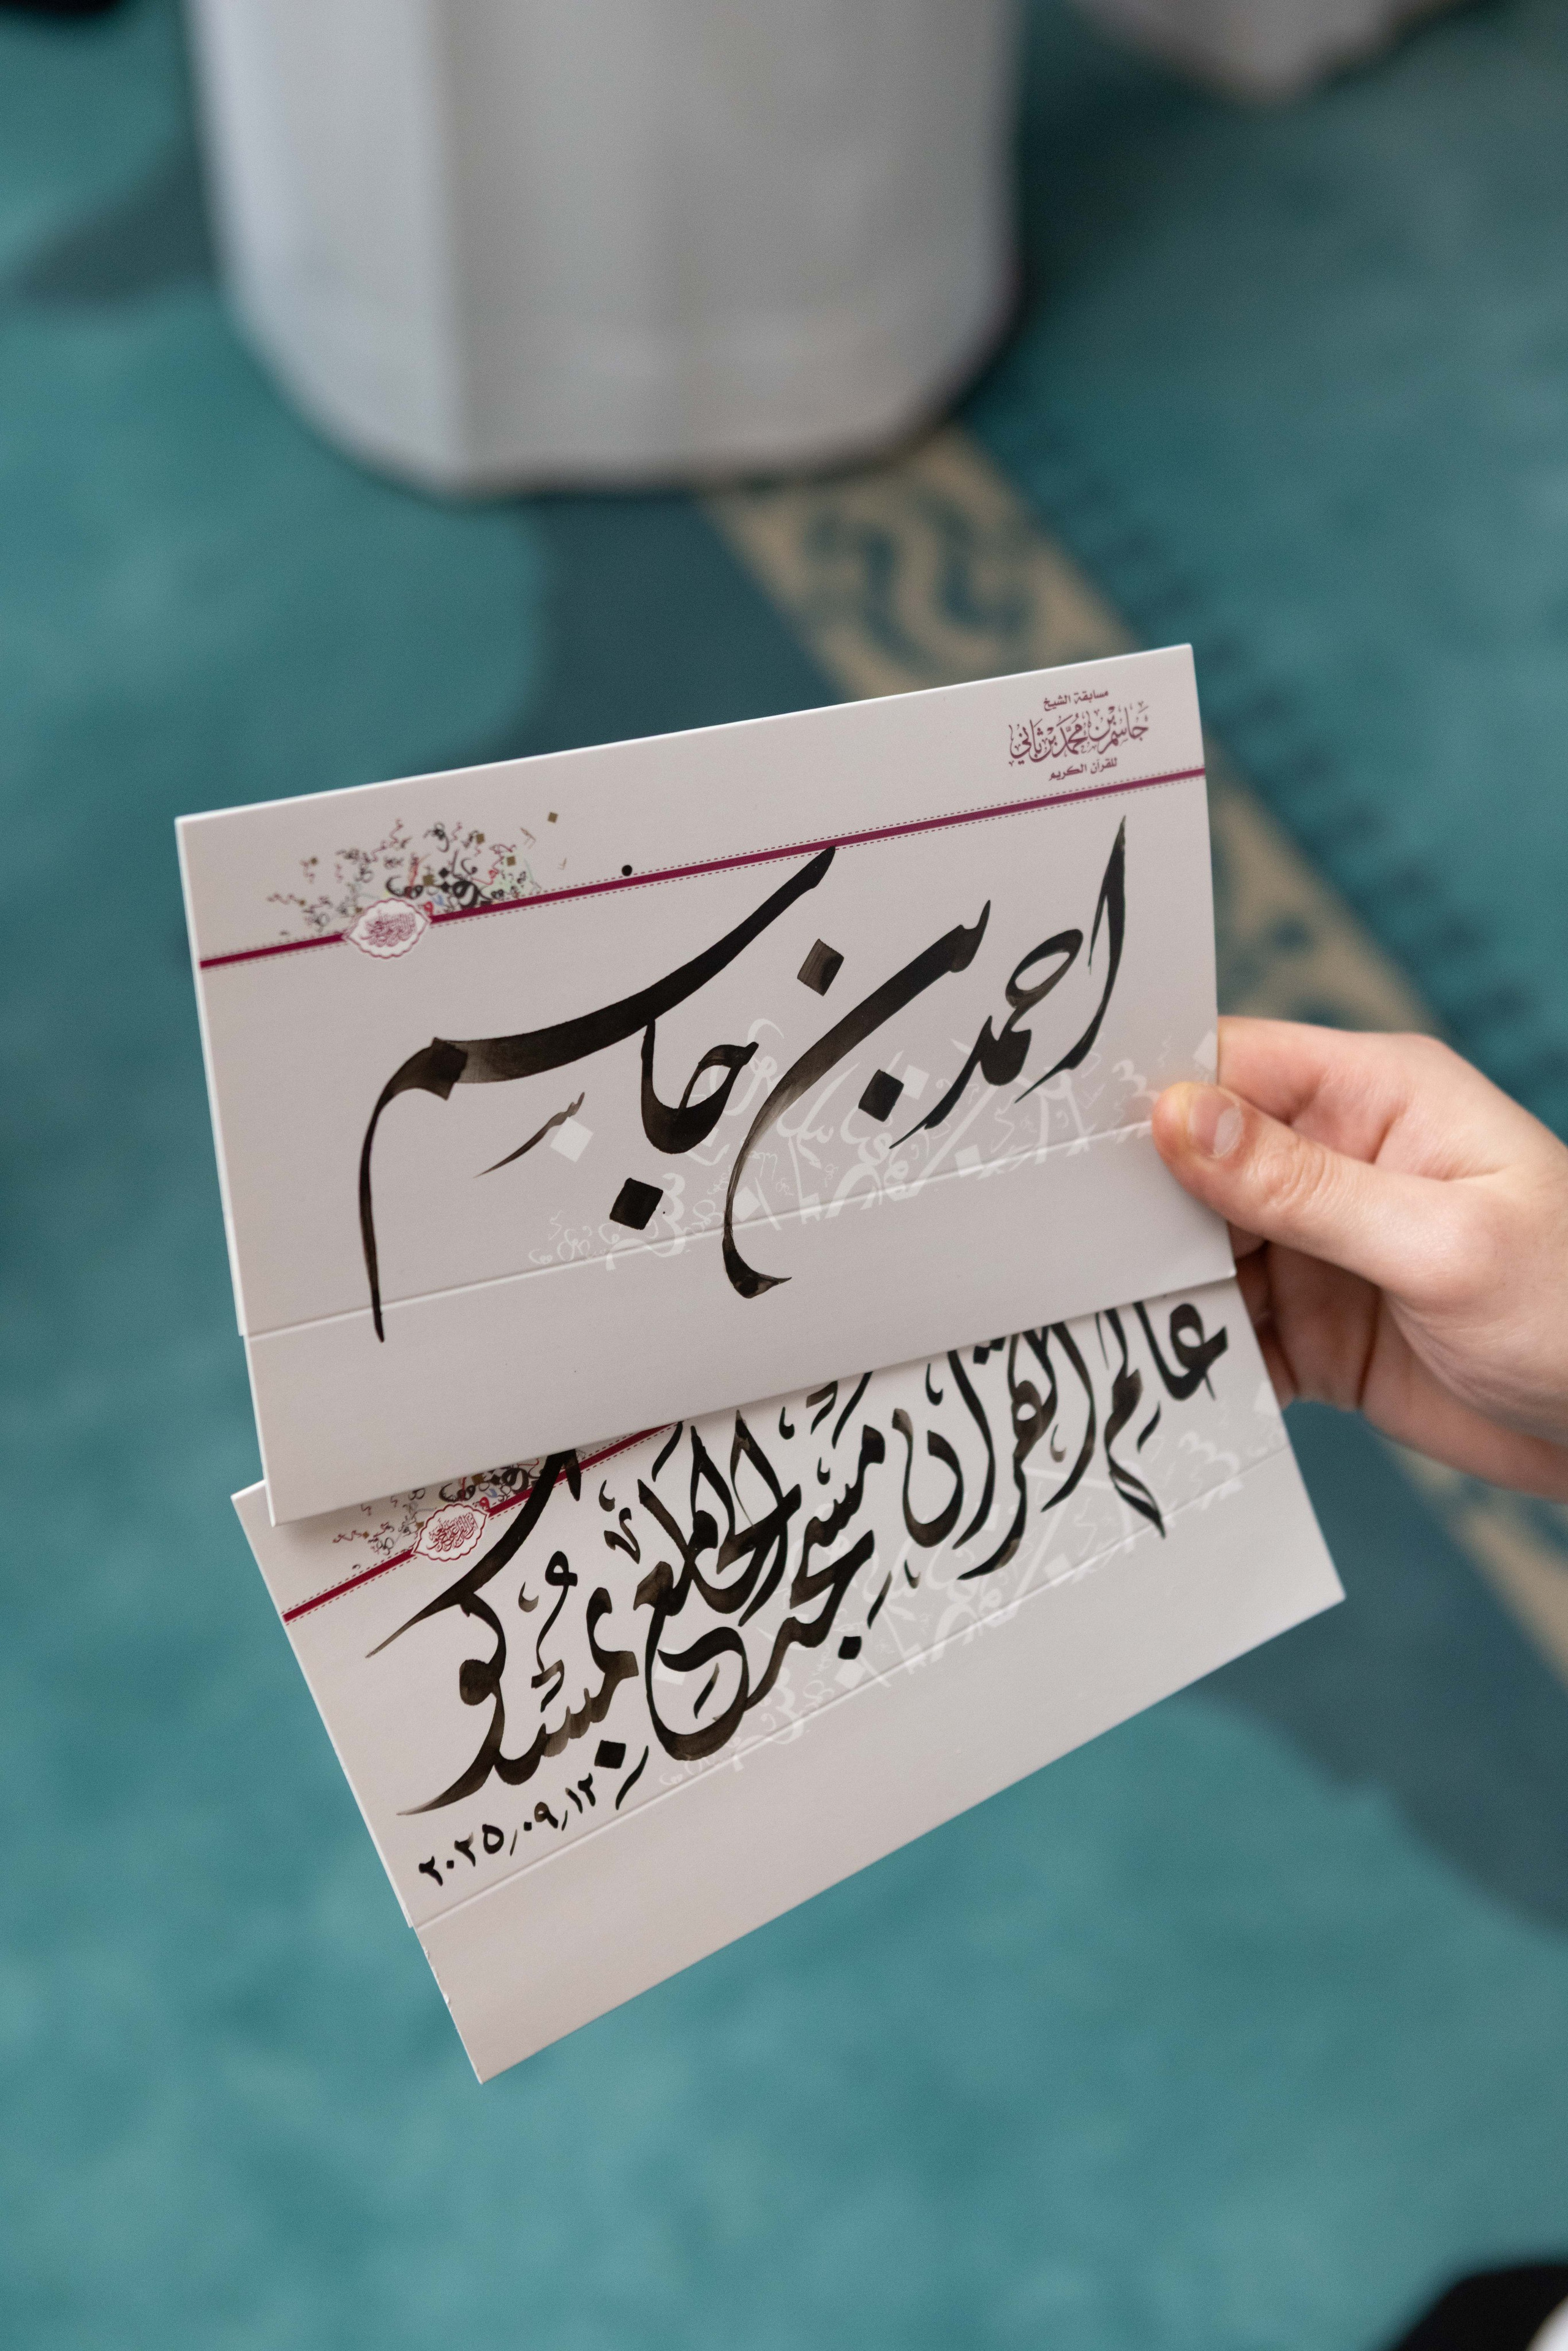 مسابقة الشيخ
جاسم بن محمد بن ثاني
للقرآن الكريم
احمد بن جاسم
عالم القرآن
مسجد الجامع بمسكو
٢٠٢٥/٠٩/١٢